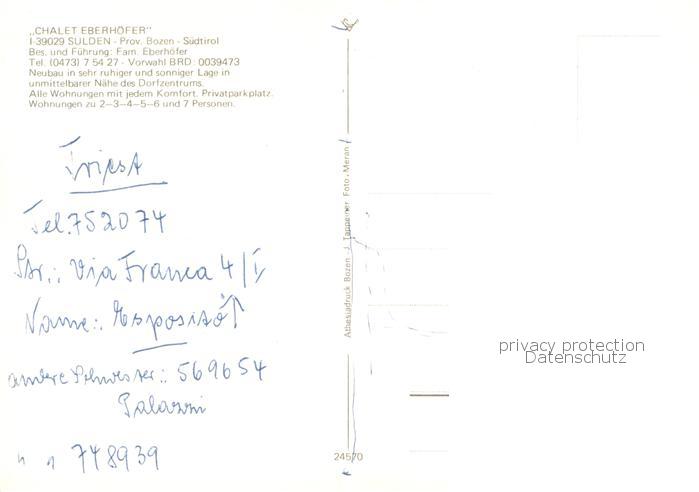 „CHALET EBERHÖFER"
I-39029 SULDEN - Prov. Bozen - Südtirol
Bes. und Führung: Fam. Eberhöfer
Tel. (0473) 7 54 27 - Vorwahl BRD: 0039473
Neubau in sehr ruhiger und sonniger Lage in
unmittelbarer Nähe des Dorfzentrums.
Alle Wohnungen mit jedem Komfort. Privatparkplatz.
Wohnungen zu 2—3—4—5—6 und 7 Personen.
Triest
Tel. 752074
Str.: Via Franca 4/I
Name: Esposito
andere Schwester: 569654
Palazzi
" " 748939
Athesiadruck Bozen - J. Tappeiner Foto - Meran
24570
privacy protection
Datenschutz